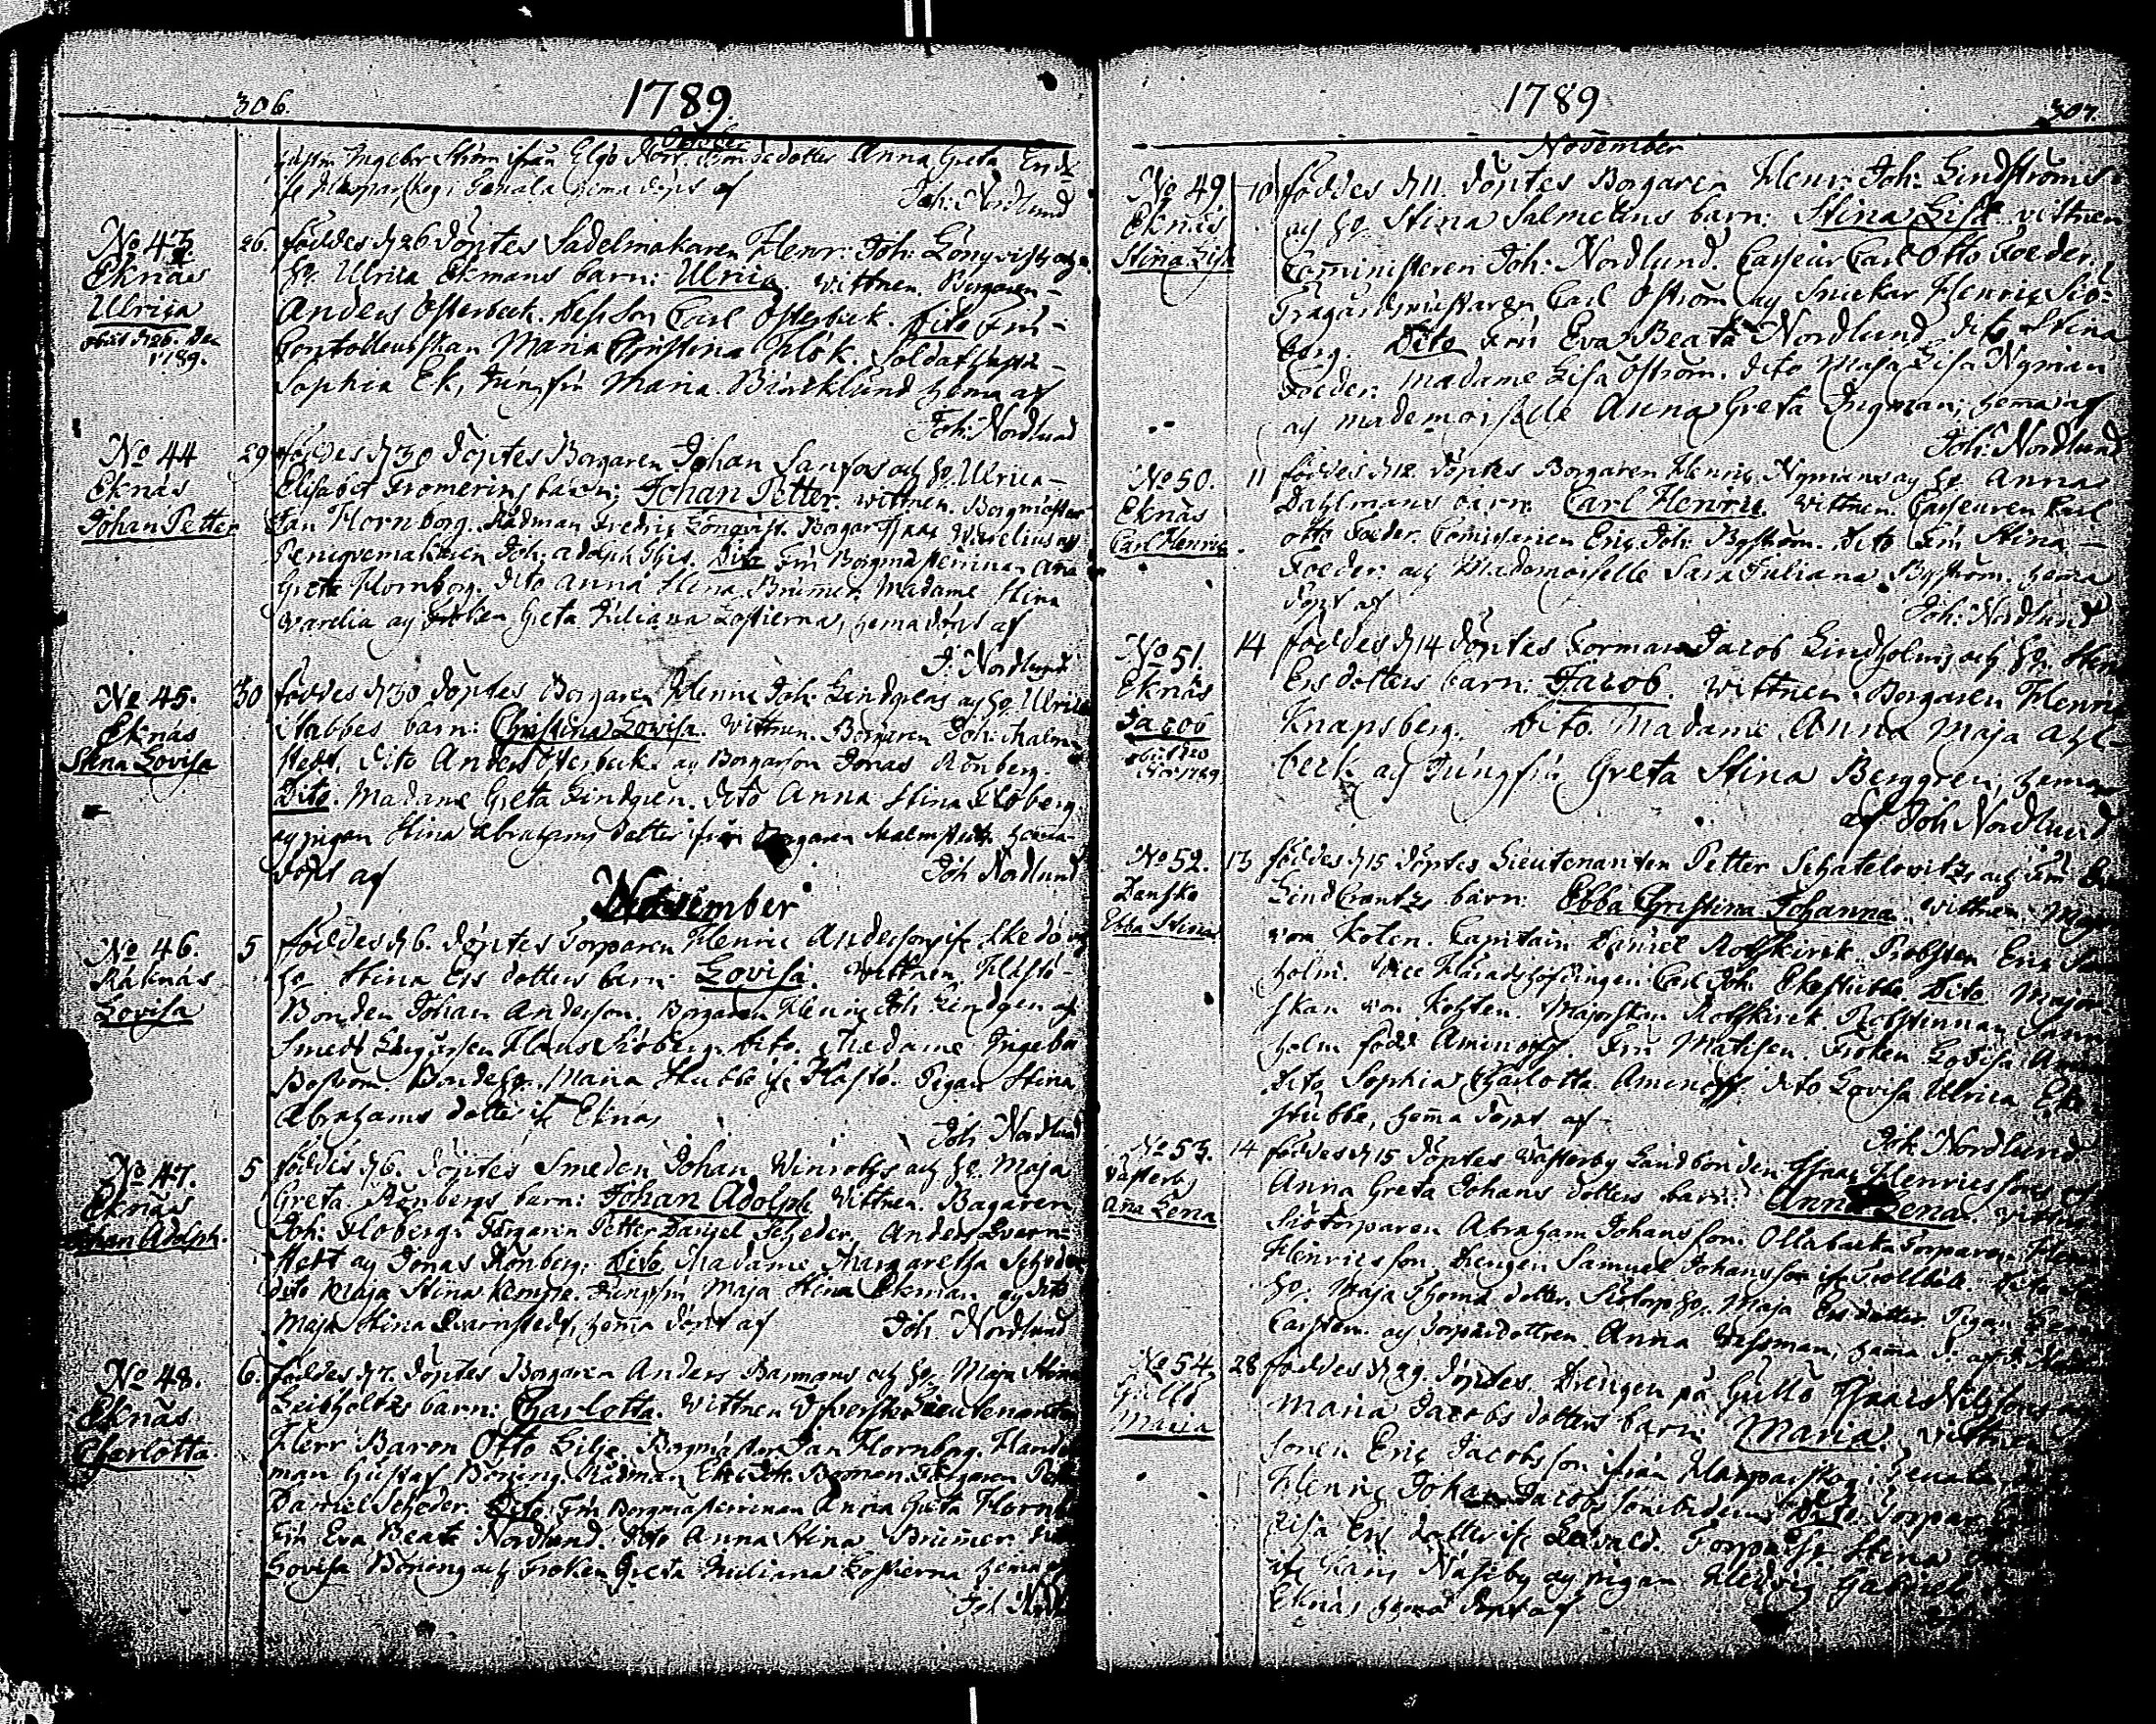 306.
1789.
October
hustr. Ingebor Ström ifrån Elgö Norr. Bondedotter Anna Greta Erics
hema döpt af Joh: Nordlund
No 43
Eknäs
Ulrica
obiit d 26. Dec
1789.
26. föddes d 26 döptes Sadelmakaren Henr: Joh: Lönqvists och
h. Ulrica Ekmans barn: Ulrica. Vittnen. Borgaren
Anders Österbeck. Dess Son Carl Österbeck. Dito Fru
Maria Christina Glök. Soldat hustr.
Sophia Ek, Jungfru Maria Biörcklund hema af
Joh: Nordlund
No 44
Eknäs
Johan Petter
29 föddes d 30 döptes Borgaren Johan och h. Ulrica
Elisabet barn; Johan Petter. vittnen. Borgmästar
Jan Hornborg. Rådman Fredric Lönqvist. Borgar Isaac Warelius och
Joh: Adolph Dito Fru Borgmästarinnan Ana
Greta Hornborg. dito Anna Stina Brümer. Madame Stina
Warelia och Fröken Greta Juliana Lofstierna, hema döpt af
J. Nordlund
No 45.
Eknäs
Stina Lovisa
30 föddes d 30 döptes Borgaren Henric Joh: Lindgrens och h. Ulrica
Stabbes barn: Christina Lovisa. Vittnen. Borgaren Joh: Malm-
stedt, dito Anders Österbeck och Borgarson Jonas Rönberg.
Dito. Madame Greta Lindgren. dito Anna Stina Floberg
och pigan Stina Abrahams dotter ifrån Borgaren Malmstedt hema
döpt af Joh Nordlund
November
No 46.
Råknäs
Lovisa
5 föddes d 6. döptes Torparen Henric Andersons if. Skedö och
h. Stina Ers dotters barn: Lovisa. Vittnen, Hästö
Bonden Johan Anderson. Borgaren Henric Joh Lindgren och
Smeds Claus Siöberg. Dito. Madame Ingeba
Boström. Bonde h. Maria Stubbe if. Hästö. Pigan Stina
Abrahams dotter if. Eknäs
Joh Nordlund
No 47.
Eknäs
Johan Adolph.
5 föddes d 6. döptes Smeden Johan Winroths och h. Maja
Greta Rönbergs barn: Johan Adolph Vittnen. Bagaren
Joh: Floberg. Färgaren Petter Daniel Scheder, Anders Qvarn-
stedt och Jonas Rönberg. Dito. Madame Margaretha Scheder
dito Maja Stina Kempe. Jungfru Maja Stina Ekman och dito
Maja Stina Qvarnstedt, hema döpt af Joh: Nordlund
No 48.
Eknäs
Charlotta
6. föddes d 7. döptes Borgaren Anders Basmans och h. Maja Stina
Leisholtz barn: Charlotta. Vittnen Öfverste Lieutenanten
Herr Baron Otto Lilje. Borgmästaren Jan Hornborg. Handels-
man Gustaf Böning. Rådman Eric Joh. Boman. Färgaren Pet:
Daniel Scheder. Dito Fru Borgmästarinnan Anna Greta Hornb
Fru Eva Beata Nordlund. dito Anna Stina Brümer. dito
Lovisa Böning och Fröken Greta Juliana Lofstierna hema af
Joh Nordl
1789
307.
November
No 49.
Eknäs
Stina Lisa
10 föddes d 11. döptes Borgaren Henr: Joh: Lindströms
och h. Stina Salmelins barn: Stina Lisa. vittnen
Comministeren Joh: Nordlund. Casseur Carl Otto Foeder,
Trägårdsmästaren Carl Öström och Snickar Henric Siö-
berg. Dito Fru Eva Beata Nordlund dito Stina
Foeder. Madame Lisa Öström. dito Maja Lisa Nyman
och mademoiselle Anna Greta Ingman; hema af
Joh: Nordlund
No 50.
Eknäs
Carl Henric
11 föddes d 12. döptes Borgaren Henric Nymans och h. Anna
Dahlmans barn. Carl Henric. Vittnen. Casseuren Carl
Otto Foeder. Comissarien Eric Joh. Byström. Dito Fru Stina
Foeder. och Mademoiselle Sara Juliana Byström. hema
döpt af Joh: Nordlund
No 51.
Eknäs
Jacob
obiit d 20
Nov: 1789
14 föddes d 14 döptes Forman Jacob Lindholms och h. Stina
Ers dotters barn: Jacob. Vittnen. Borgaren Henric
Knapsberg. Dito. Madame Anna Maja Ahl-
beck och Jungfru Greta Stina Berggren; hema
af Joh Nordlund
No 52.
Dansko
Ebba Stina
13 föddes d 15 döptes Lieutenanten Petter Schatelowitz och Fru
Lindcrantz barn: Ebba Christina Johanna. Vittnen. Major
von Koten. Capitain Daniel Rotkirck. Probsten Eric
holm. Vice Häradshöfdingen Carl Joh. Ekestubbe. Dito Major
skan von Kohten. Majorskan Rotkirck. Probstinnan
holm född Aminoff. Fru Matisen. Fröken Lovisa
dito Sophia Charlotta Aminoff dito Lovisa Ulrica Ek
stubbe, hema döpt af
Joh Nordlund
No 53.
Västerby
Ana Lena
14 föddes d 15 döptes Västerby Landbonden Isaac Henricssons och
Anna Greta Johans dotters barn: Anna Lena. vittnen
Siötorparen Abraham Johansson. Ollabacka Torparen Hen
Henricsson, Drengen Samuel Johansson if. Trollböle. Dito
h. Maja Thoma dotter. Siötorp h. Maja Ers dotter. Pigan
Carsten. och Torparedottren Anna Wessman, hema d. af J. Nord
No 54.
Gullö
Maria
28 föddes d 29. döptes. Drengen på Gullö Isaacs Nilssons och
Maria Jacobs dotters barn: Maria. Vittnen
sonen Eric Jacobsson ifrån
Henric Johan Jacobs son ibidem. Dito. Torpar
Lisa Ers dotter if. Leksvald. Torpar h. Stina
if. Näseby och pigan Hedvig Gabriels
Eknäs, hema döpt af